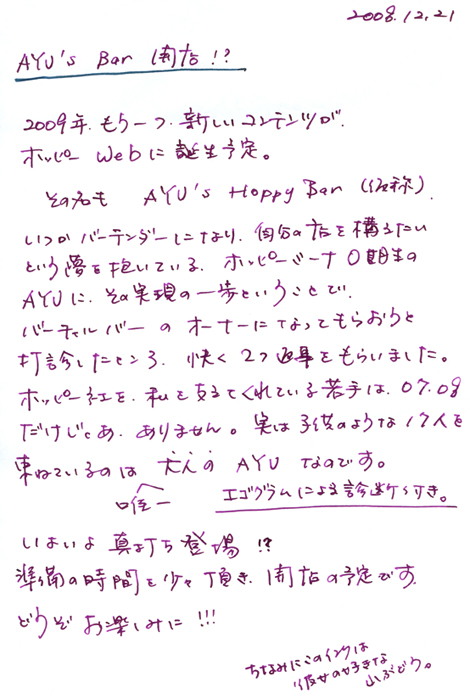 2008.12.21
AYU's Bar 開店!?
2009年、もう一つ、新しいコンテンツが、
ホッピー Webに誕生予定。
その名も AYU's Hoppy Bar (仮称)
いつかバーテンダーになり、自分の店を構えたい
という夢を抱いている、ホッピーミーナ0期生の
AYUに、その実現の一歩ということで、
バーチャルバーのオーナーになってもらおうと
打診したところ、快く2つ返事をもらいました。
ホッピー社を、私を支えてくれている若手は、07.08
だけじゃあ、ありません。実は子供のような17人を
束ねているのは 大人の AYU なのです。
唯一 エゴグラムによる診断ケッキ。
いよいよ真打ち登場!?
準備の時間を少々頂き、開店の予定です
どうぞお楽しみに!!!
ちなみにこのインクは
彼女の好きな
山ぶどう。